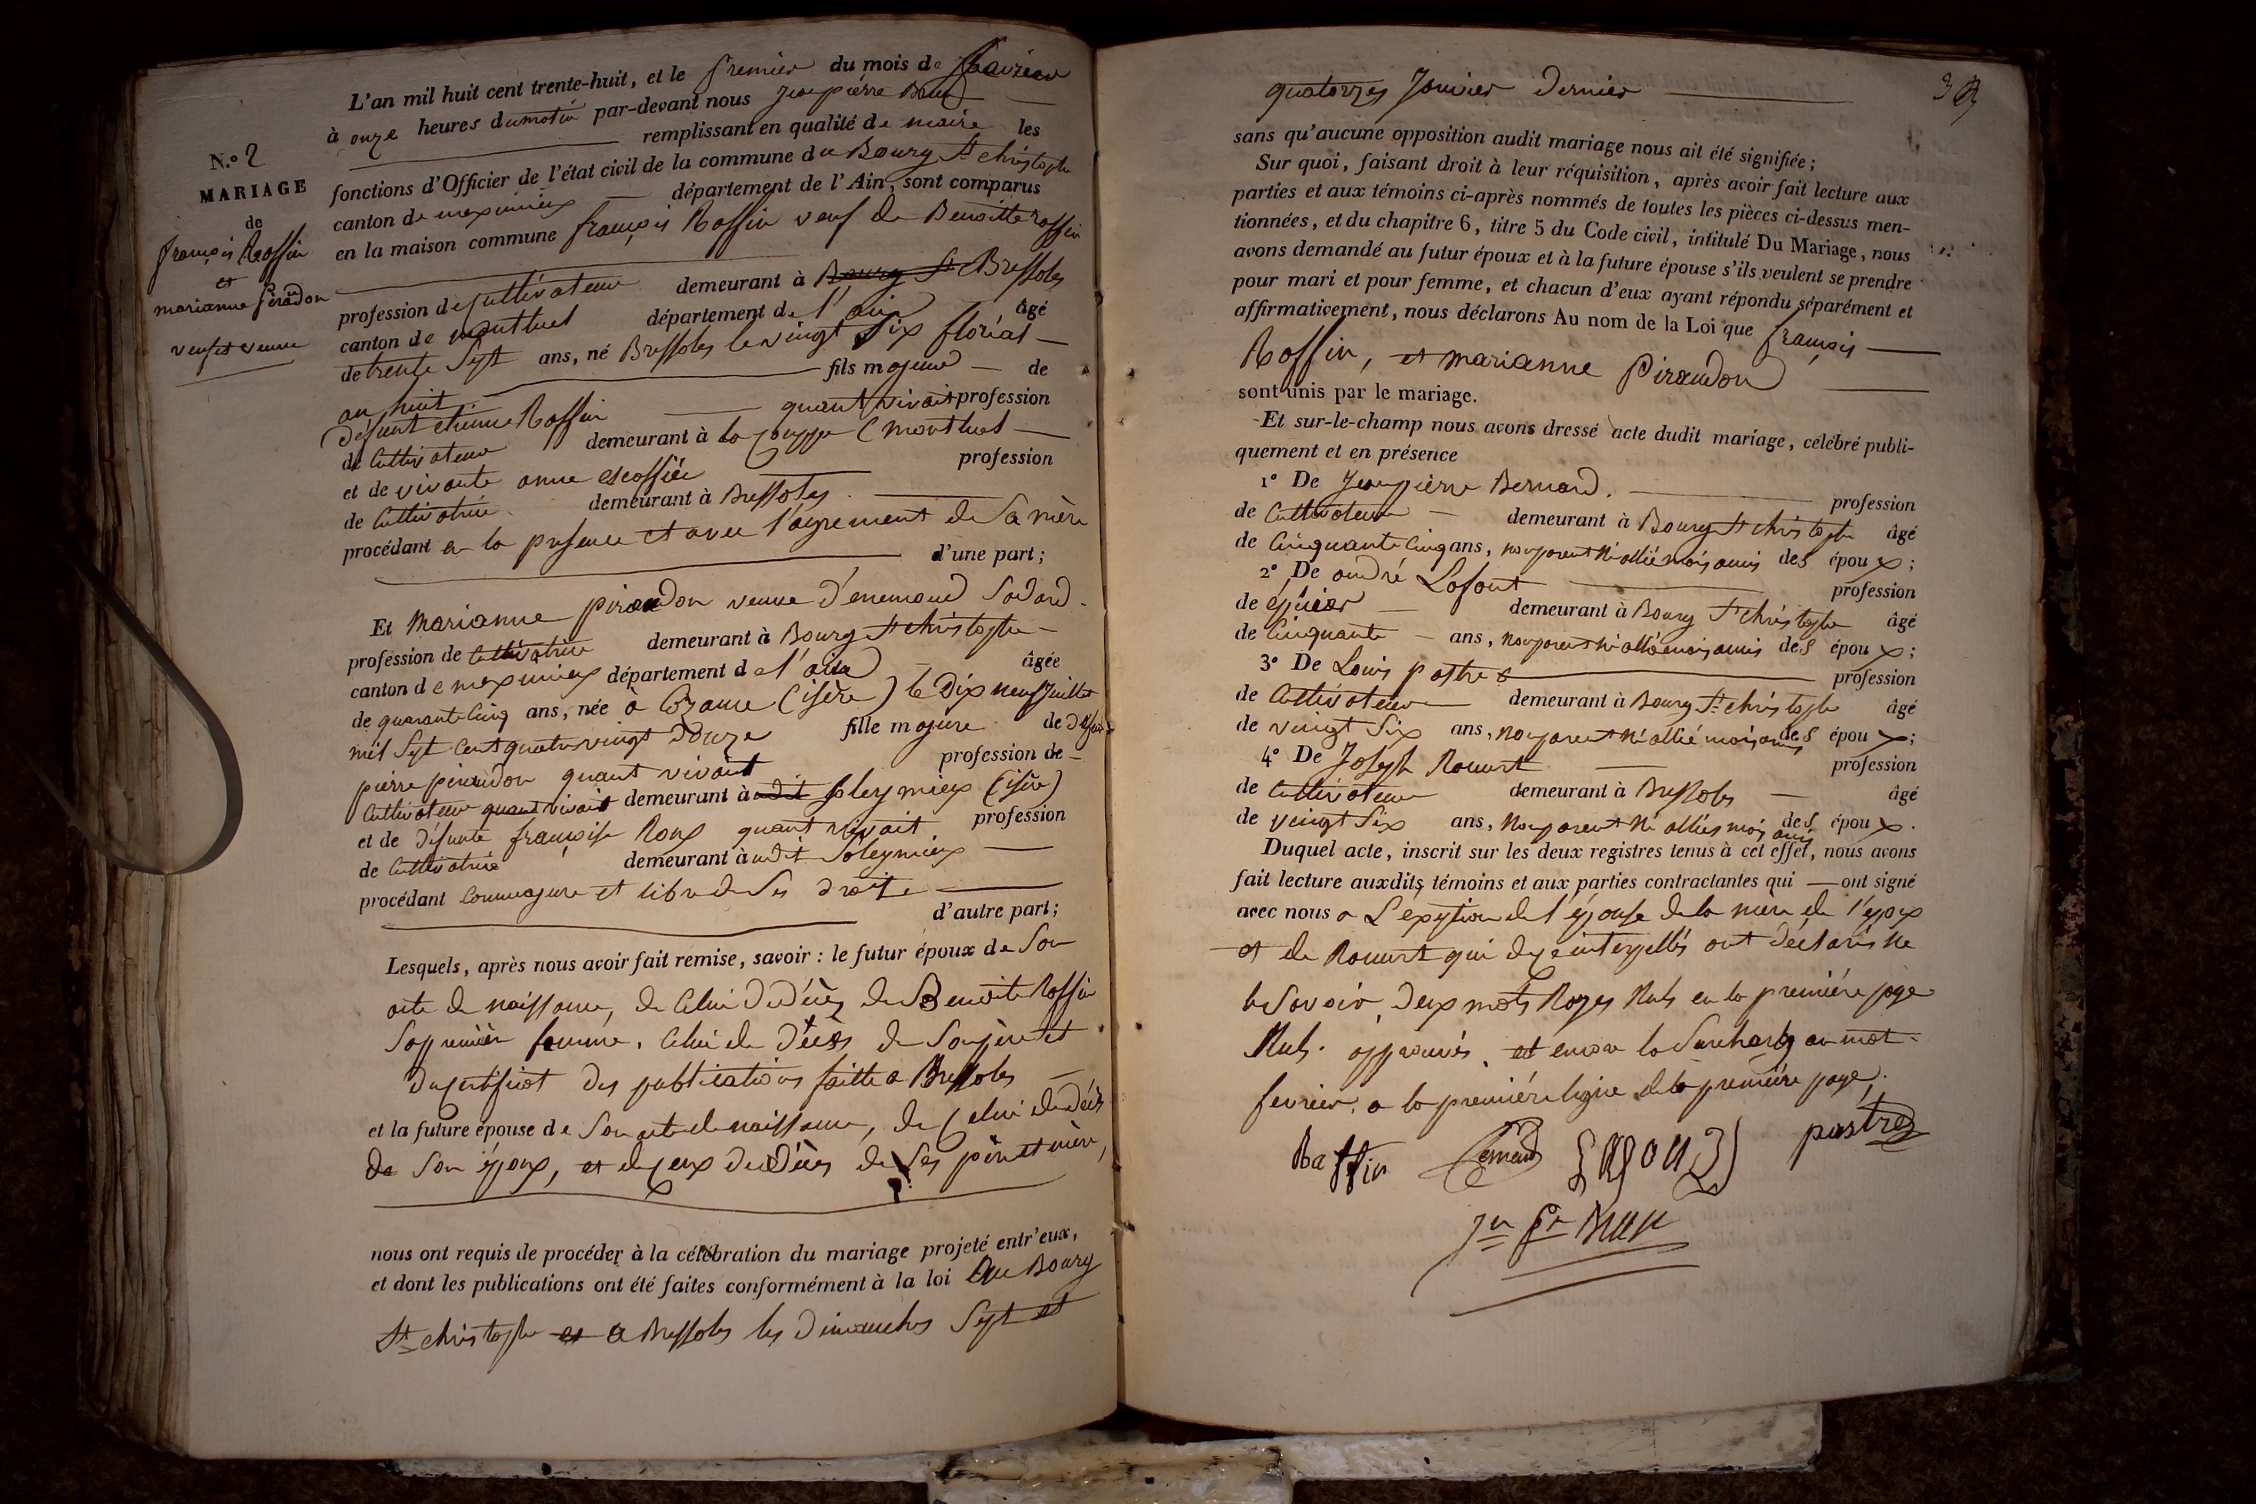 N.o 2
MARIAGE
de
françois Roffin
et
marianne Piraudon
veuf et veuve
L'an mil huit cent trente-huit, et le premier du mois de fevrier
à onze heures du matin par-devant nous Jean pierre
remplissant en qualité de maire les
fonctions d'Officier de l'état civil de la commune du Bourg St christophe
canton de meximieux département de l'Ain, sont comparus
en la maison commune françois Roffin veuf de Benoitte roffin
profession de cultivateur demeurant à Bourg St Bressoles
canton de montluel département de l'ain âgé
de trente Sept ans, né Bressoles le vingt Six floréal
an huit fils majeur de
défunt etienne Roffin quant vivait profession
de Cultivateur demeurant à la (montluel
et de vivante anne escoffier profession
de Cultivatrice demeurant à Bressoles
procédant en la presence et avec l'agrement de Sa mère
d'une part;
Et Marianne piraudon veuve d'enemond Sadard
profession de Cultivatrice demeurant à Bourg St christophe
canton de meximieux département de l'ain âgée
de quarante Cinq ans, née à (isère) le Dix neuf Juillet
mil Sept Cent quatre vingt Douze fille majeure de Defunt
pierre piraudon quant vivait profession de
Cultivateur quant vivait demeurant à udit Sleymieux (isère)
et de défunte françoise Roux quant vivait profession
de Cultivatrice demeurant à udit Soleymieux
procédant Comme majeure et libre de Ses droits
d'autre part;
Lesquels, après nous avoir fait remise, savoir : le futur époux de Son
acte de naissance, de Celui du décès de Benoite Roffin
Sa première femme, Celui de décès de Son père et
du certificat des publications faitte a Bressoles
et la future épouse de Son acte de naissance, de Celui de décès
de Son époux, et de ceux de décès de Ses père et mère,
nous ont requis de procéder à la célébration du mariage projeté entr'eux,
et dont les publications ont été faites conformément à la loi Au Bourg
St christophe et a Bressoles les Dimanches Sept et
quatorze Janvier dernier
sans qu'aucune opposition audit mariage nous ait été signifiée;
Sur quoi, faisant droit à leur réquisition, après avoir fait lecture aux
parties et aux témoins ci-après nommés de toutes les pièces ci-dessus men-
tionnées, et du chapitre 6, titre 5 du Code civil, intitulé Du Mariage, nous
avons demandé au futur époux et à la future épouse s'ils veulent se prendre
pour mari et pour femme, et chacun d'eux ayant répondu séparément et
affirmativement, nous déclarons Au nom de la Loi que françois
Roffin, et marianne Piraudon
sont unis par le mariage.
Et sur-le-champ nous avons dressé acte dudit mariage, célébré publi-
quement et en présence
1o De Jean pierre Bernard. profession
de Cultivateur demeurant à Bourg St christophe âgé
de Cinquante Cinq ans, non parent ni allié mais amis des époux;
2o De andré Lafont profession
de épicier demeurant à Bourg St christophe âgé
de Cinquante ans, non parent ni allié mais amis des époux;
3o De Louis pathre profession
de Cultivateur demeurant à Bourg St christophe âgé
de vingt Six ans, non parent ni allié mais amis des époux;
4o De Joseph profession
de Cultivateur demeurant à Bressoles âgé
de vingt Six ans, non parent ni alliés mais amis des époux.
Duquel acte, inscrit sur les deux registres tenus à cet effet, nous avons
fait lecture auxdits témoins et aux parties contractantes qui ont signé
avec nous a L'éxeption de l'épouse de la mère de l'époux
et de qui de ce interpellés ont déclarés ne
le Savoir, deux mots Rayes Nuls en la première page
Nuls. approuvés et encore la Surcharge au mot
fevrier. a la première ligne de la première page,
Roffin Bernard Lafont pastre
Jn Pre